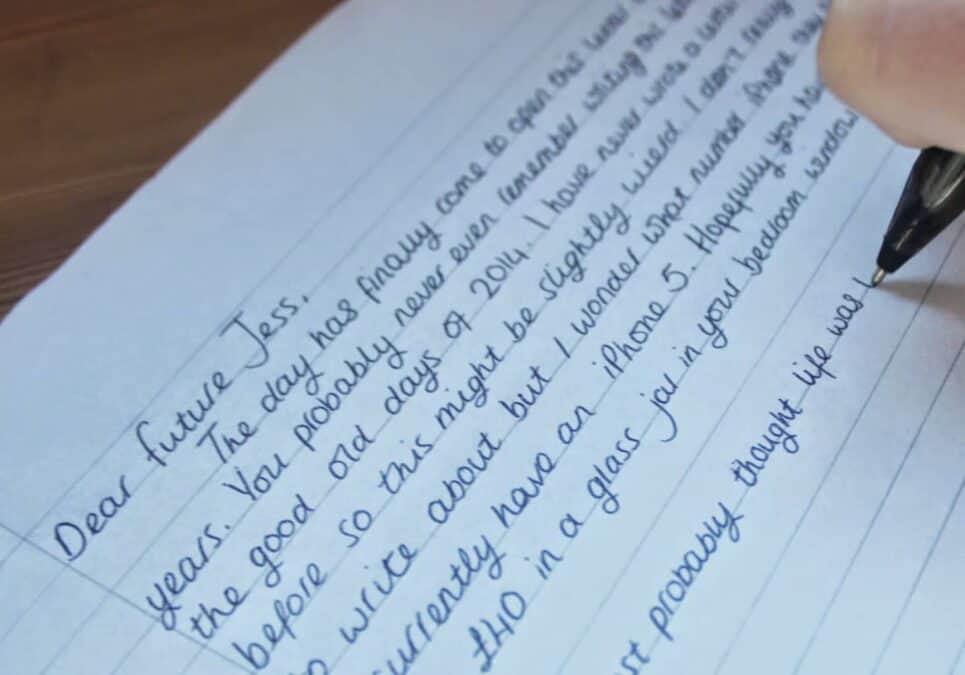 Dear future Jess,
The day has finally come to open this letter
years. You probably never even remember writing this
the good old days of 2014. I have never wrote a letter
before so this might be slightly wierd. I don't really
write about but I wonder what number iPhone they
currently have an iPhone 5. Hopefully you
£40 in a glass jar in your bedroom window
probably thought life was